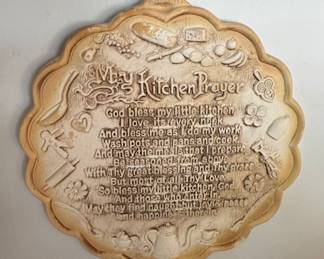 My Kitchen Prayer
God bless my little kitchen
I love its every nook
And bless me as I do my work
Wash pots and pans and cook
And may the meals that I prepare
Be seasoned from above
With Thy great blessing and Thy grace
But most of all Thy Love
So bless my little kitchen, God
And those who enter in
May they find naught but joy, peace
and happiness therein